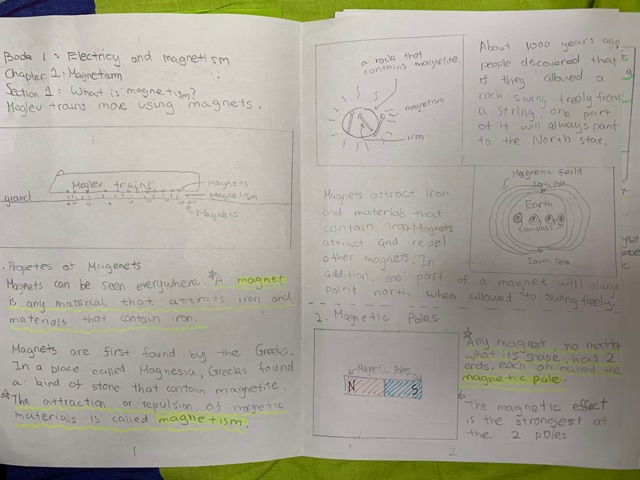 Book 1: Electricy and magnetism
Chapter 1: Magnetism
Section 1: What is magnetism?
Meglev trains move using magnets.
Meglev trains
Magnets
Magnetism
Magnets
ground
1. Propeties of Magenets
Magnets can be seen everywhere. *A magnet
is any material that attrats iron and
materials that contain iron.
Magnets are first found by the Greeks.
In a place called Magnesia, Greeks found
a kind of stone that contain magnetite.
*The attraction or repulsion of magnetic
materials is called magnetism.
1
a rock that
contains magnetite
magnetism
iron
About 1000 years ago,
people discovered that
if they allowed a
rock swing freely from
a string, one part
of it will always point
to the North star.
Magnets attract iron
and materials that
contain iron. Magnets
attract and repel
other magnets. In
addition, one part of a magnet will always
point north when allowed to swing freely.
Magnetic Feild
Earth
Compass
South Pole
2. Magnetic Poles
Magnetic Poles
N
S
*Any magnet, no matter
what its shape, has 2
ends, each on called the
magnetic pole.
*The magnetic effect
is the strongest at
the 2 poles
2